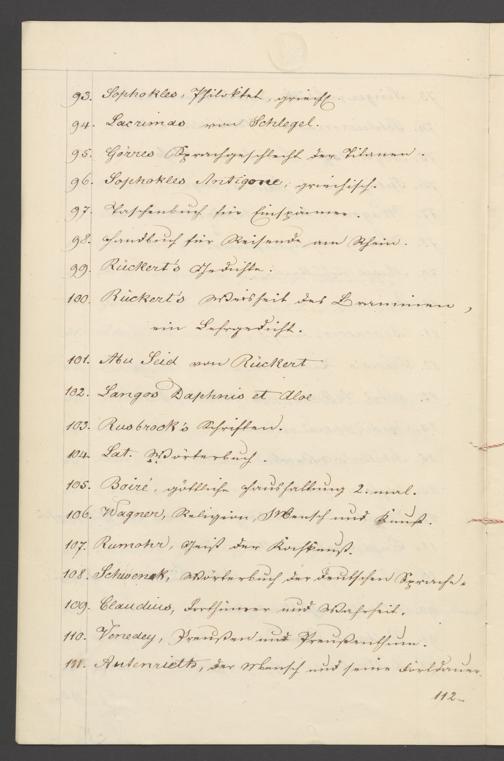 93. Sophokles, Philoktet, griech.
94. Lacrimas von Schlegel.
95. Görres Sprachgeschlecht der Titanen.
96. Sophokles Antigone, griechisch.
97. Taschenbuch für Einspänner.
98. Handbuch für Reisende am Rhein.
99. Rückert's Gedichte.
100. Rückert's Weisheit des Braminen,
ein Lehrgedicht.
101. Abu Seid von Rückert
102. Daphnis et
103. Rusbrock's Schriften.
104. Lat. Wörterbuch.
105. göttliche Haushaltung 2. mal.
106. Wagner, Religion, Mensch und Kunst.
107. Rumohr, Geist der Kochkunst.
108. Schwenck, Wörterbuch der deutschen Sprache.
109. Claudius, und Wahrheit.
110. Venedey, Preußen und Preußenthum.
111. Autenrieth, der Mensch und seine Fortdauer
112-